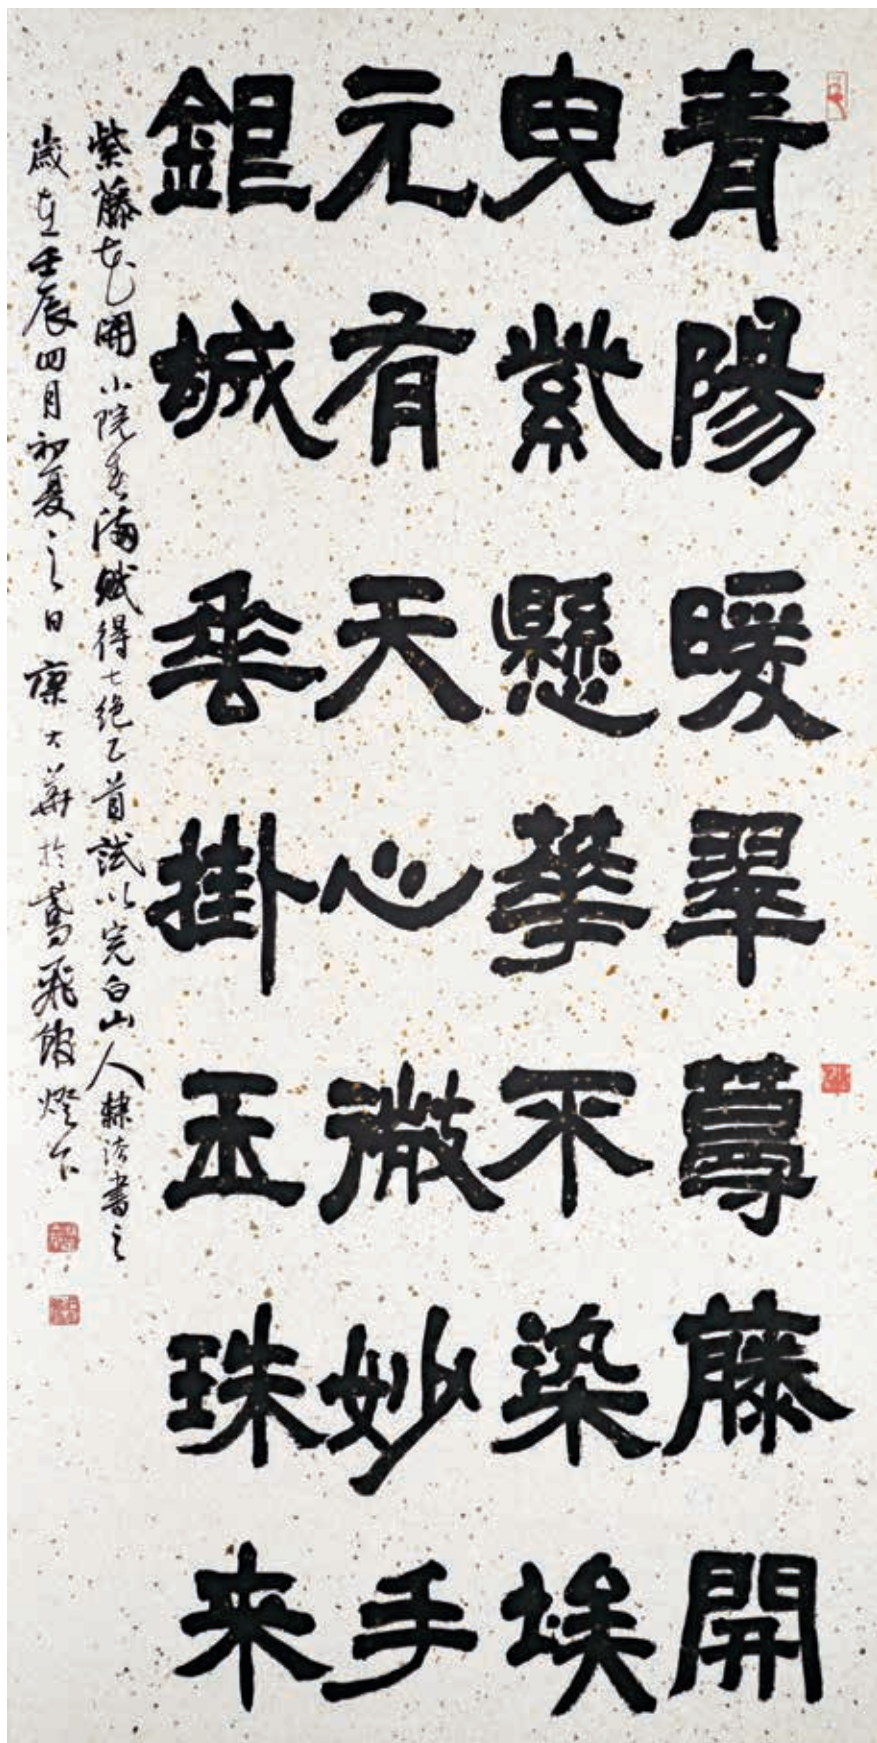 青陽暖翠蕚藤開
曳紫懸華不染埃
元有天心微妙手
銀城垂掛玉珠来
紫藤花開小院春滿賦得七绝乙首試以完白山人隸法書之
歲在壬辰四月初夏之日康大華於鳶飛館燈下